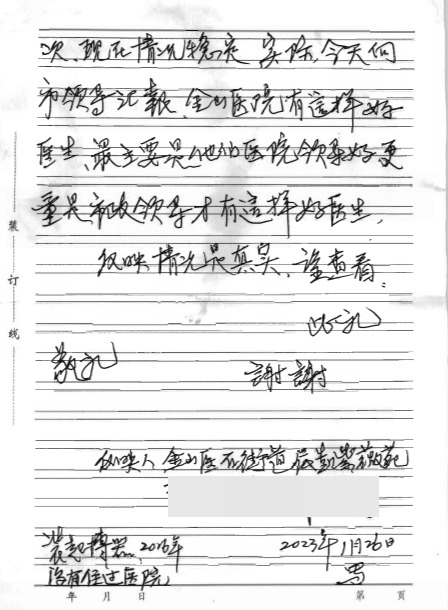 次、现在情况稳定 实际,今天向
市领导记载,金山医院有这样好
医生,最主要是他们医院领导好更
重是市政领导才有这样好医生,
反映情况是真实、望查看。
此礼
敬礼
謝謝
反映人、金山区石化街道
装起搏器、2016年
没有住过医院,
2023年1月26日
写
装订线
年 月 日
第 页